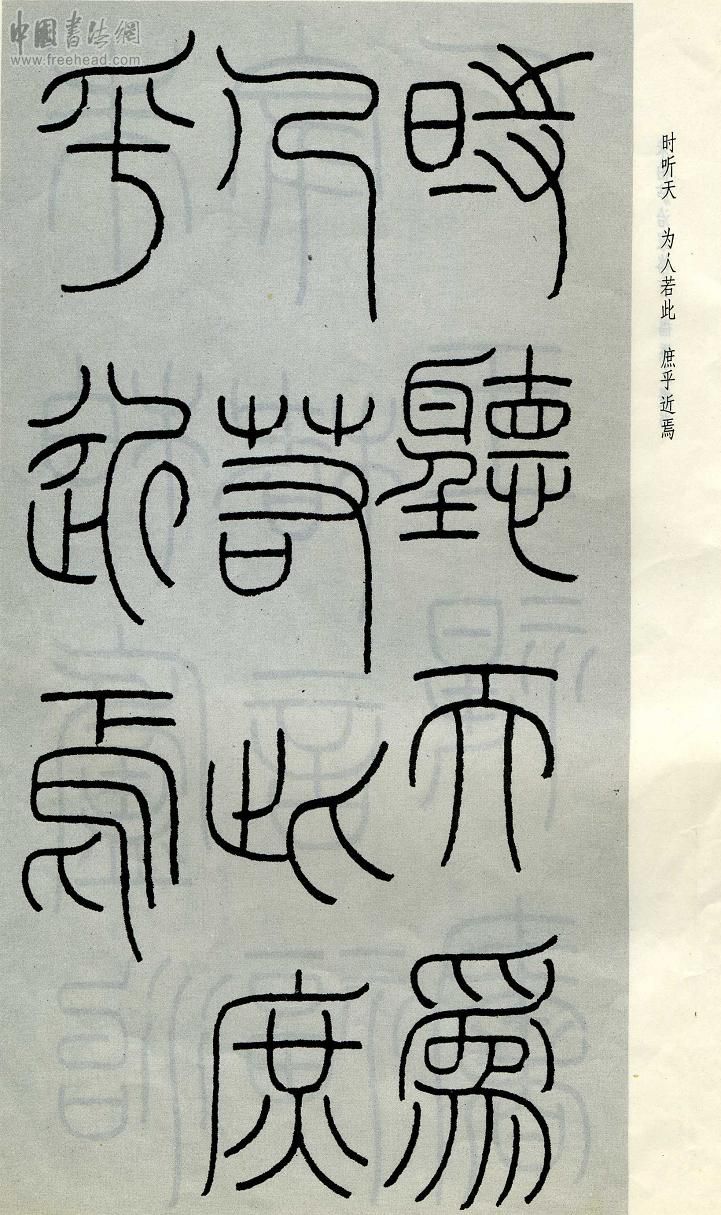 时听天 为人若此 庶乎近焉
時聽天爲
人若此庶
乎近焉
中国书法網
www.freehead.com